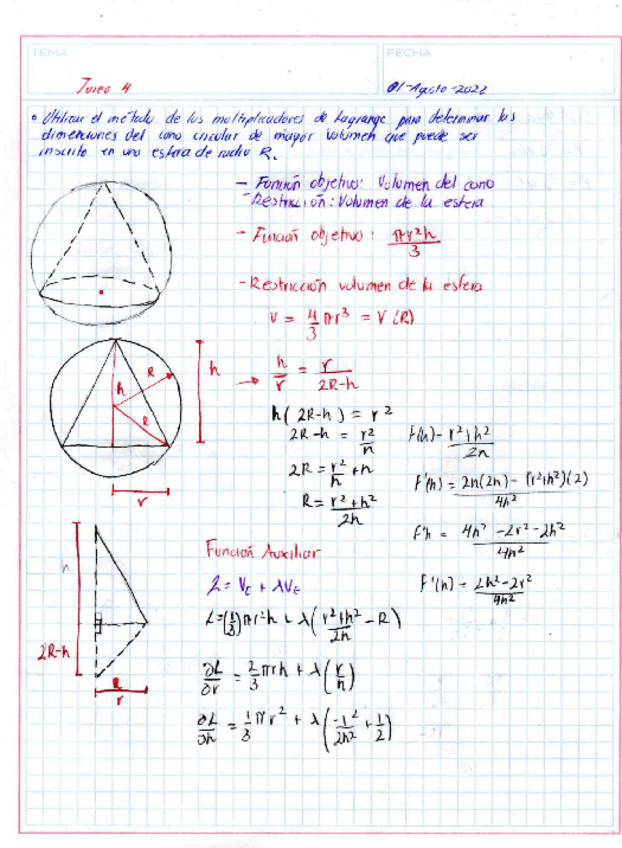 TEMA
FECHA
Tarea 4
01-Agosto-2022
• Utilizar el método de los multiplicadores de Lagrange para determinar las
dimensiones del cono circular de mayor volumen que puede ser
inscrito en una esfera de radio R.
- Función objetivo: Volumen del cono
- Restricción: Volumen de la esfera
- Función objetivo: πr²h/3
- Restricción volumen de la esfera
V = 4/3 πr³ = V(R)
h
R
R
h
r
→ h/r = r/(2R-h)
h(2R-h) = r²
2R-h = r²/h
2R = r²/h + h
R = (r²+h²)/2h
F(h) - (r²+h²)/2h
F'(h) = (2h(2h) - (r²+h²)(2))/4h²
F'h = (4h² - 2r² - 2h²)/4h²
F'(h) = (2h² - 2r²)/4h²
h
2R-h
R
r
Función Auxiliar
L = Vc + λVE
L = (1/3)πr²h + λ((r²+h²)/2h - R)
∂L/∂r = 2/3 πrh + λ(r/h)
∂L/∂h = 1/3 πr² + λ(-r²/2h² + 1/2)